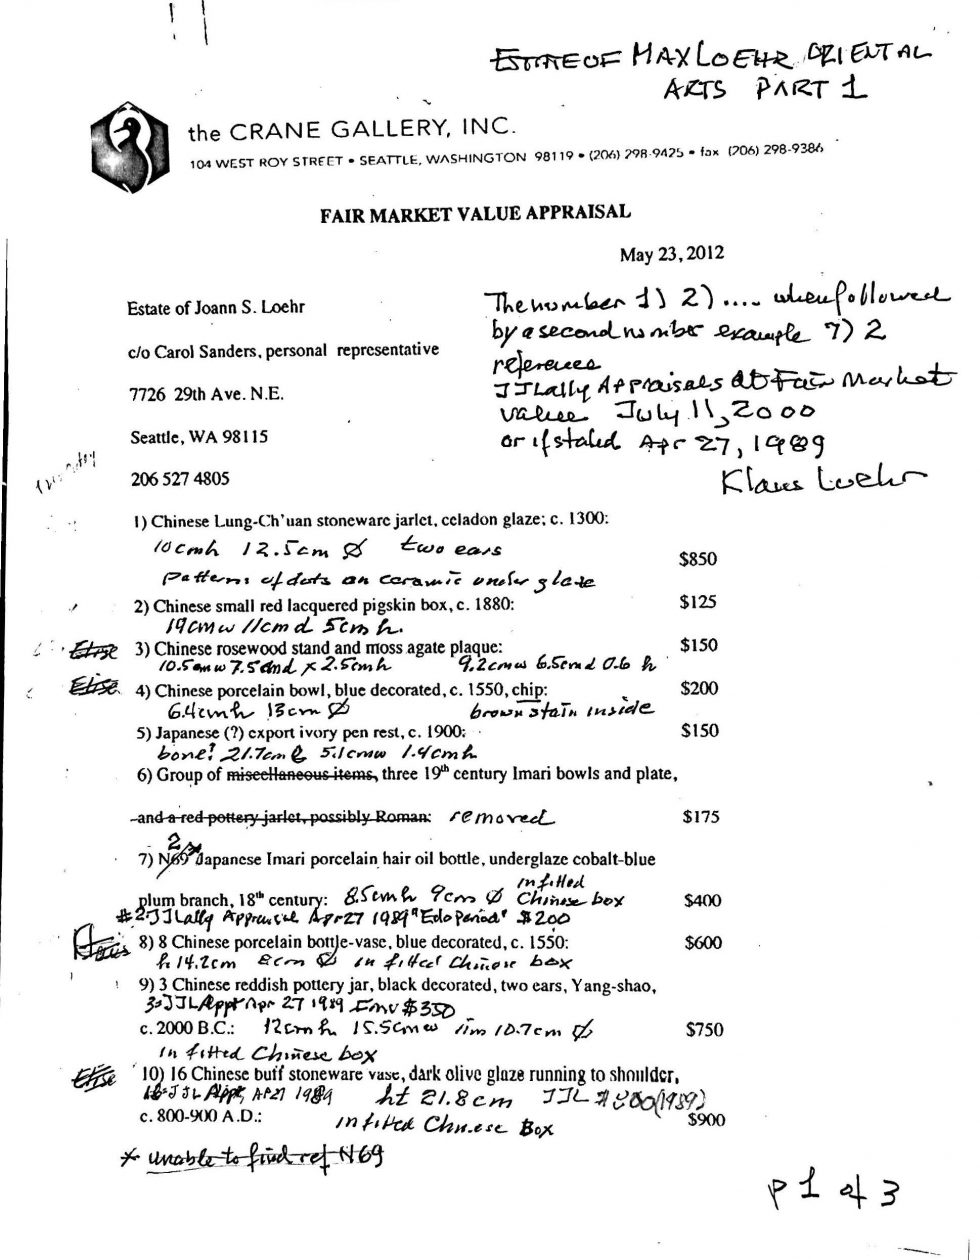 ESTATE OF MAX LOEHR ORIENTAL
ARTS PART 1
the CRANE GALLERY, INC.
104 WEST ROY STREET • SEATTLE, WASHINGTON 98119 • (206) 298-9425 • fax (206) 298-9386
FAIR MARKET VALUE APPRAISAL
May 23, 2012
Estate of Joann S. Loehr
c/o Carol Sanders, personal representative
7726 29th Ave. N.E.
Seattle, WA 98115
206 527 4805
The number 1) 2) .... when followed
by a second number example 7) 2
references
JJLally Appraisals at Fair Market
value July 11, 2000
or if stated Apr 27, 1989
Klaus Loehr
1) Chinese Lung-Ch'uan stoneware jarlet, celadon glaze; c. 1300:
10cmh 12.5cm Ø two ears
$850
Patterns of dots on ceramic under glaze
2) Chinese small red lacquered pigskin box, c. 1880: $125
19cmw 11cmd 5cmh.
Elise 3) Chinese rosewood stand and moss agate plaque: $150
10.5cmw 7.5cmd x 2.5cmh 9.2cmw 6.5cmd 0.6 h
Elise 4) Chinese porcelain bowl, blue decorated, c. 1550, chip: $200
6.4cmh 13cm Ø brown stain inside
5) Japanese (?) export ivory pen rest, c. 1900: $150
bone? 21.7cm l 5.1cmw 1.4cmh
6) Group of miscellaneous items, three 19th century Imari bowls and plate,
and a red pottery jarlet, possibly Roman: removed $175
2 *
7) N69 Japanese Imari porcelain hair oil bottle, underglaze cobalt-blue
plum branch, 18th century: 8.5cmh 9cm Ø in fitted Chinese box $400
#2 JJLally Appraisal Apr 27 1989 "Edo Period" $200
8) 8 Chinese porcelain bottle-vase, blue decorated, c. 1550: $600
h 14.2cm 8cm Ø in fitted Chinese box
9) 3 Chinese reddish pottery jar, black decorated, two ears, Yang-shao,
3 JJL Appr Apr 27 1989 FMV $350
c. 2000 B.C.: 12cm h 15.5cm w rim 10.7cm Ø $750
in fitted Chinese box
Elise 10) 16 Chinese buff stoneware vase, dark olive glaze running to shoulder,
16 JJL Appr, AP27 1989 ht 21.8cm JJL $800(1989)
c. 800-900 A.D.: in fitted Chinese Box $900
* unable to find ref N69
p 1 of 3